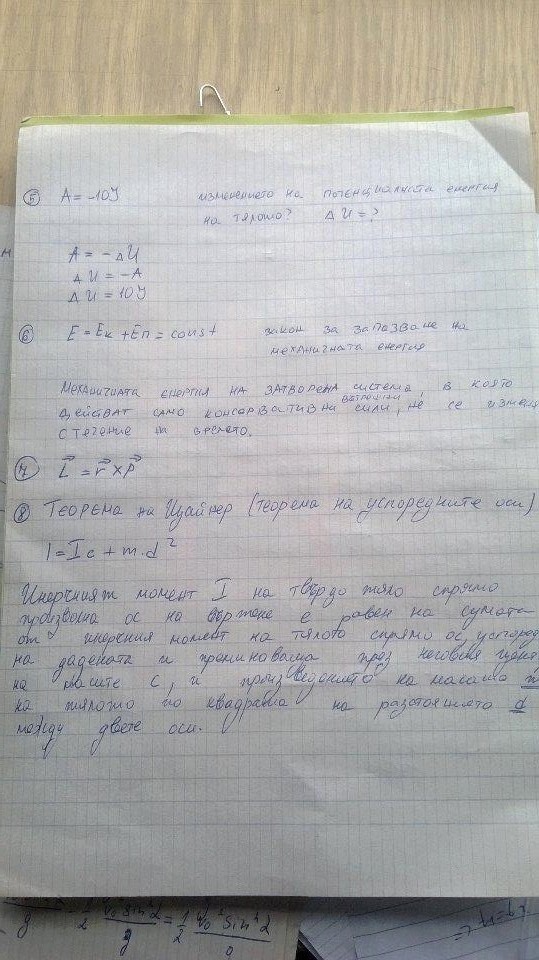 ⑤ A = -10J изменението на потенциалната енергия
на тялото? ΔU = ?
A = -ΔU
ΔU = -A
ΔU = 10J
⑥ E = Eк + Eп = const закон за запазване на
механичната енергия
Механичната енергия на затворена система, в която
действат само консервативни вътрешни сили, не се изменя
с течение на времето.
⑦ L⃗ = r⃗ x p⃗
⑧ Теорема на Щайнер (теорема на успоредните оси)
I = Ic + m.d²
Инерчният момент I на твърдо тяло спрямо
произволна ос на въртене е равен на сумата
от инерчния момент на тялото спрямо ос, успоред
на дадената и преминаваща през неговия
на масите C, и произведението на масата m
на тялото по квадрата на разстоянието d
между двете оси.